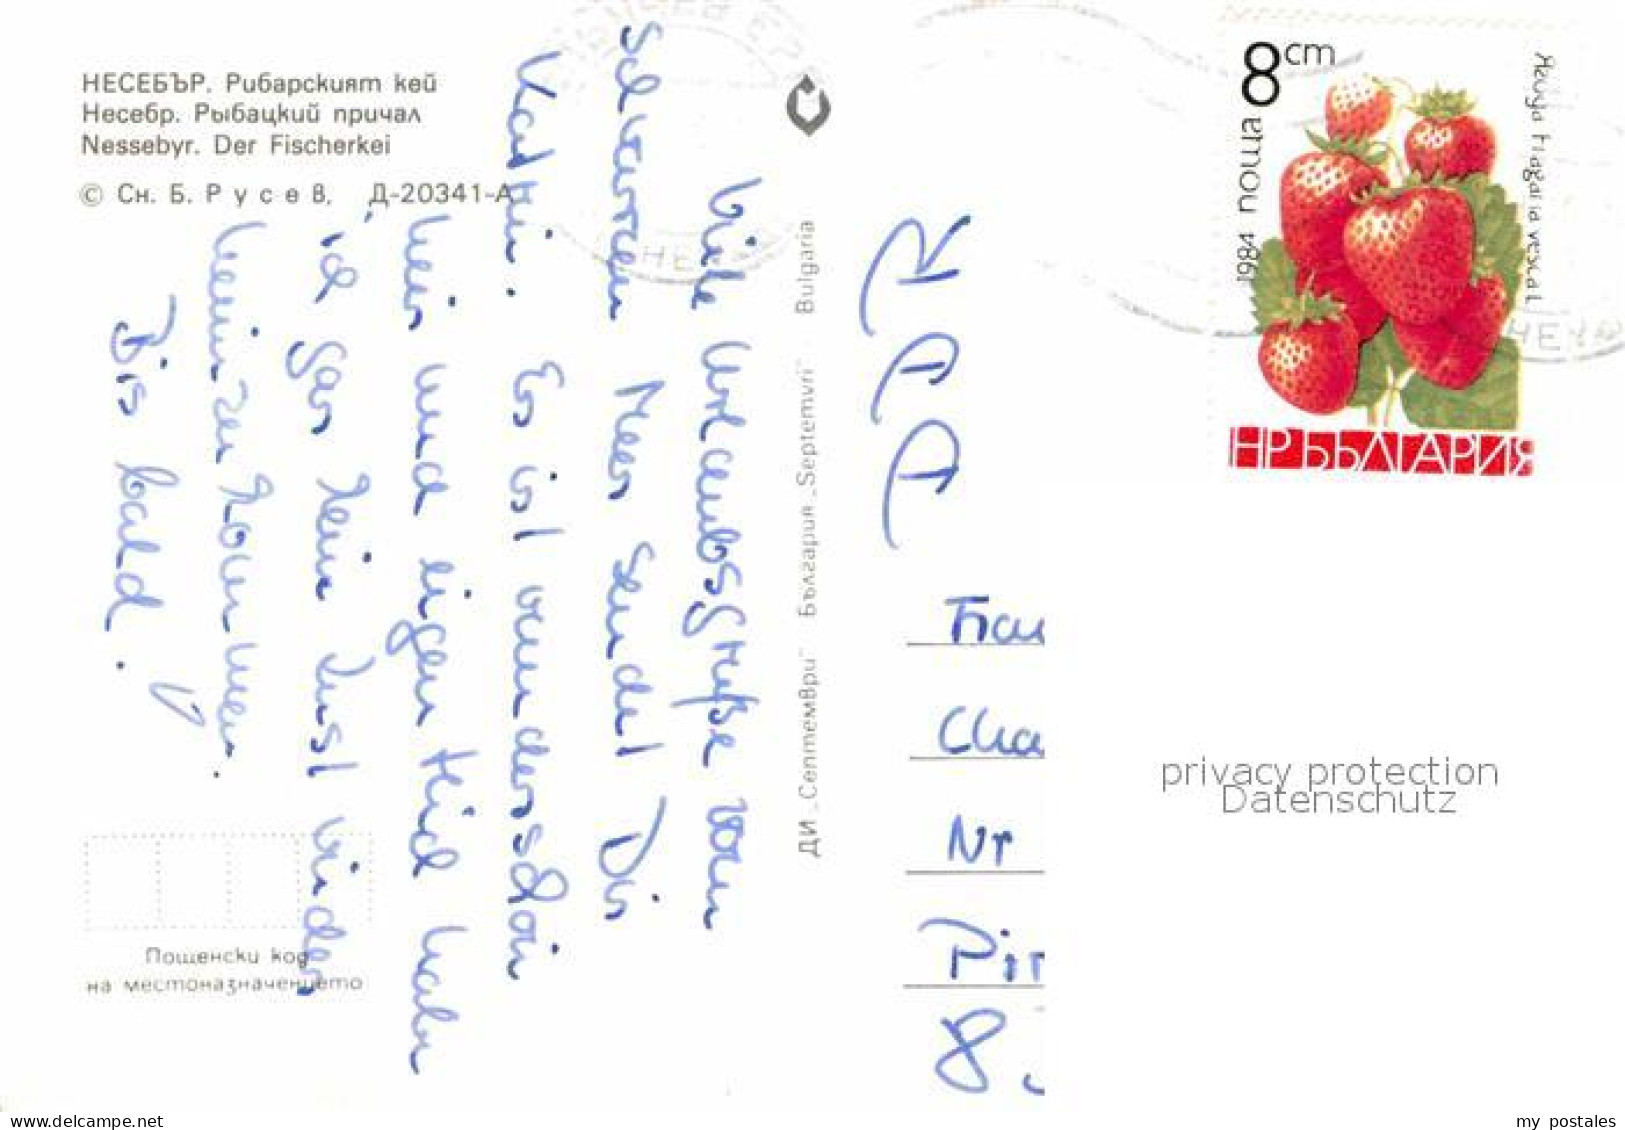 НЕСЕБЪР. Рибарският кей
Несебр. Рыбацкий причал
Nessebyr. Der Fischerkei
© Сн. Б. Русев, Д-20341-А
Viele Urlaubsgrüße vom
schwarzen Meer sendet Dir
Kathi. Es ist wunderschön
hier und eigentlich habe
ich gar keine Lust wieder
heimzukommen.
Bis bald.
Пощенски код
на местоназначението
ДИ „Септември" България „Septemvri" Bulgaria
DDR
Frau
Cha
Nr
Pir
8
8 ст
ПОЩА
1984
Ягода Fragaria vesca L
НР БЪЛГАРИЯ
privacy protection
Datenschutz
www.delcampe.net
my_postales